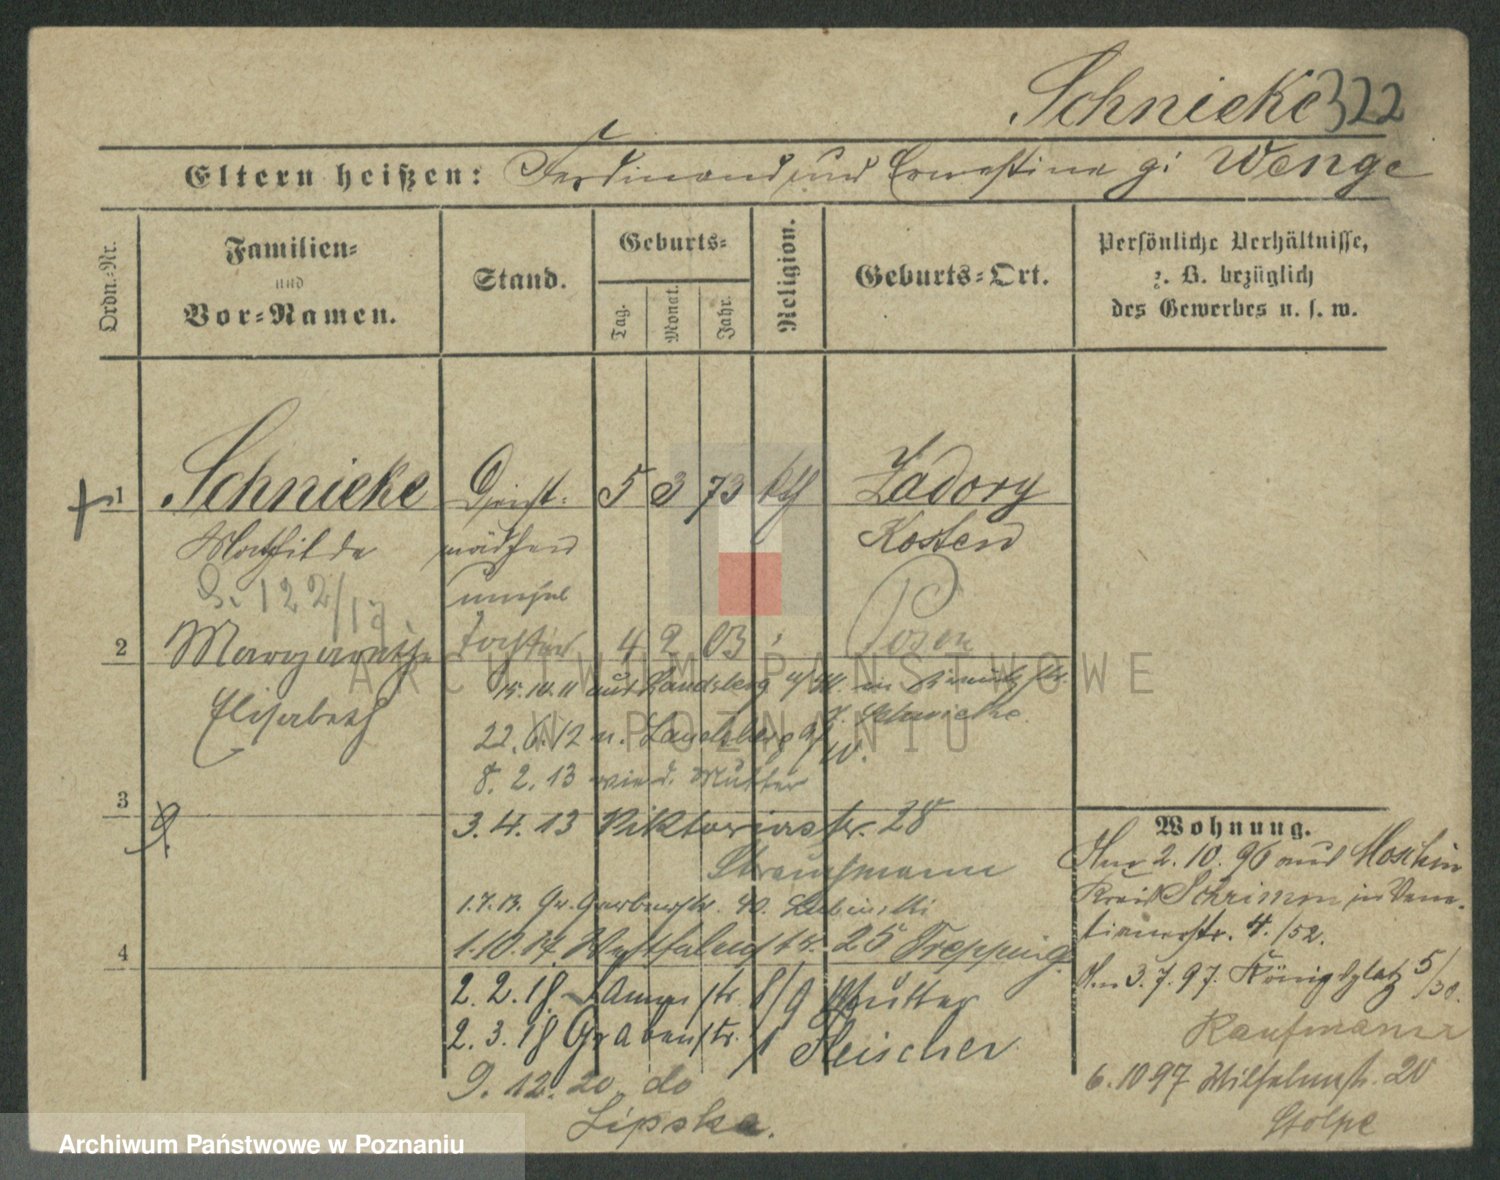 Schnieke 322
Eltern heißen: Ferdinand und Ernestine g. Wenge
Ordn.-Nr.
Familien-
und
Vor-Namen.
Stand.
Geburts-
Tag.
Monat.
Jahr.
Religion.
Geburts-Ort.
Persönliche Verhältnisse,
z. B. bezüglich
des Gewerbes u. s. w.
1 Schnieke Dienst- 5 3 73 kth Zadory
Mathilde mädchen Kosten
S. 122/17.
2 Margarethe Tochter 4 2 03 Posen
Elisabeth
15.10.11 aus Landsberg a/W. in
22.6.12 n. Landsberg a/W.
8.2.13 wie d. Mutter
3
3.4.13 Viktoriastr. 28
1.7.13. Gr. Gerberstr. 40.
4
1.10.17. 25 Trepping
2.2.18 8/9 Mutter
2.3.18 Grabenstr. 1 Fleischer
9.12.20 do
Lipska.
Wohnung.
Am 2.10.96 aus Moschin
Kreis Schrimm in Vene-
tianerstr. 4./52.
Am 3.7.97. Königsplatz 5/30.
Kaufmann
6.10 97 Wilhelmstr. 20
Stolpe
ARCHIWUM PAŃSTWOWE
W POZNANIU
Archiwum Państwowe w Poznaniu